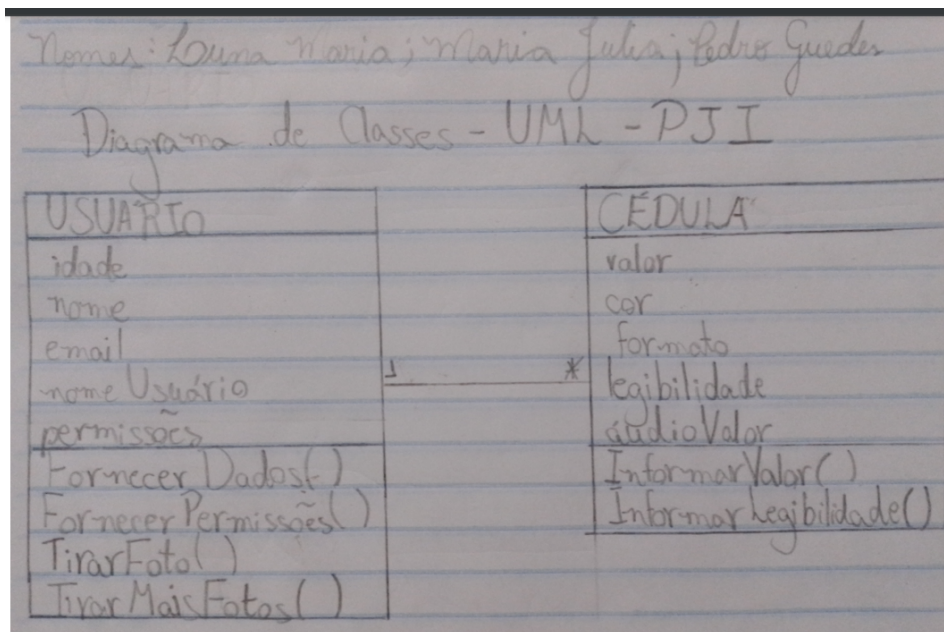 Nomes: Louna Maria; Maria Julia; Pedro Guedes
Diagrama de Classes - UML - PJI
USUÁRIO
idade
nome
email
nomeUsuário
permissões
FornecerDados()
FornecerPermissões()
TirarFoto()
TirarMaisFotos()
1 *
CÉDULA
valor
cor
formato
legibilidade
áudioValor
InformarValor()
InformarLegibilidade()